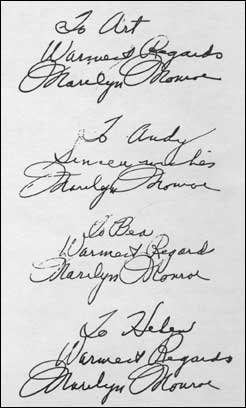 To Art
Warmest Regards
Marilyn Monroe
To Andy
Sincere wishes
Marilyn Monroe
To Bea
Warmest Regard
Marilyn Monroe
To Helen
Warmest Regards
Marilyn Monroe